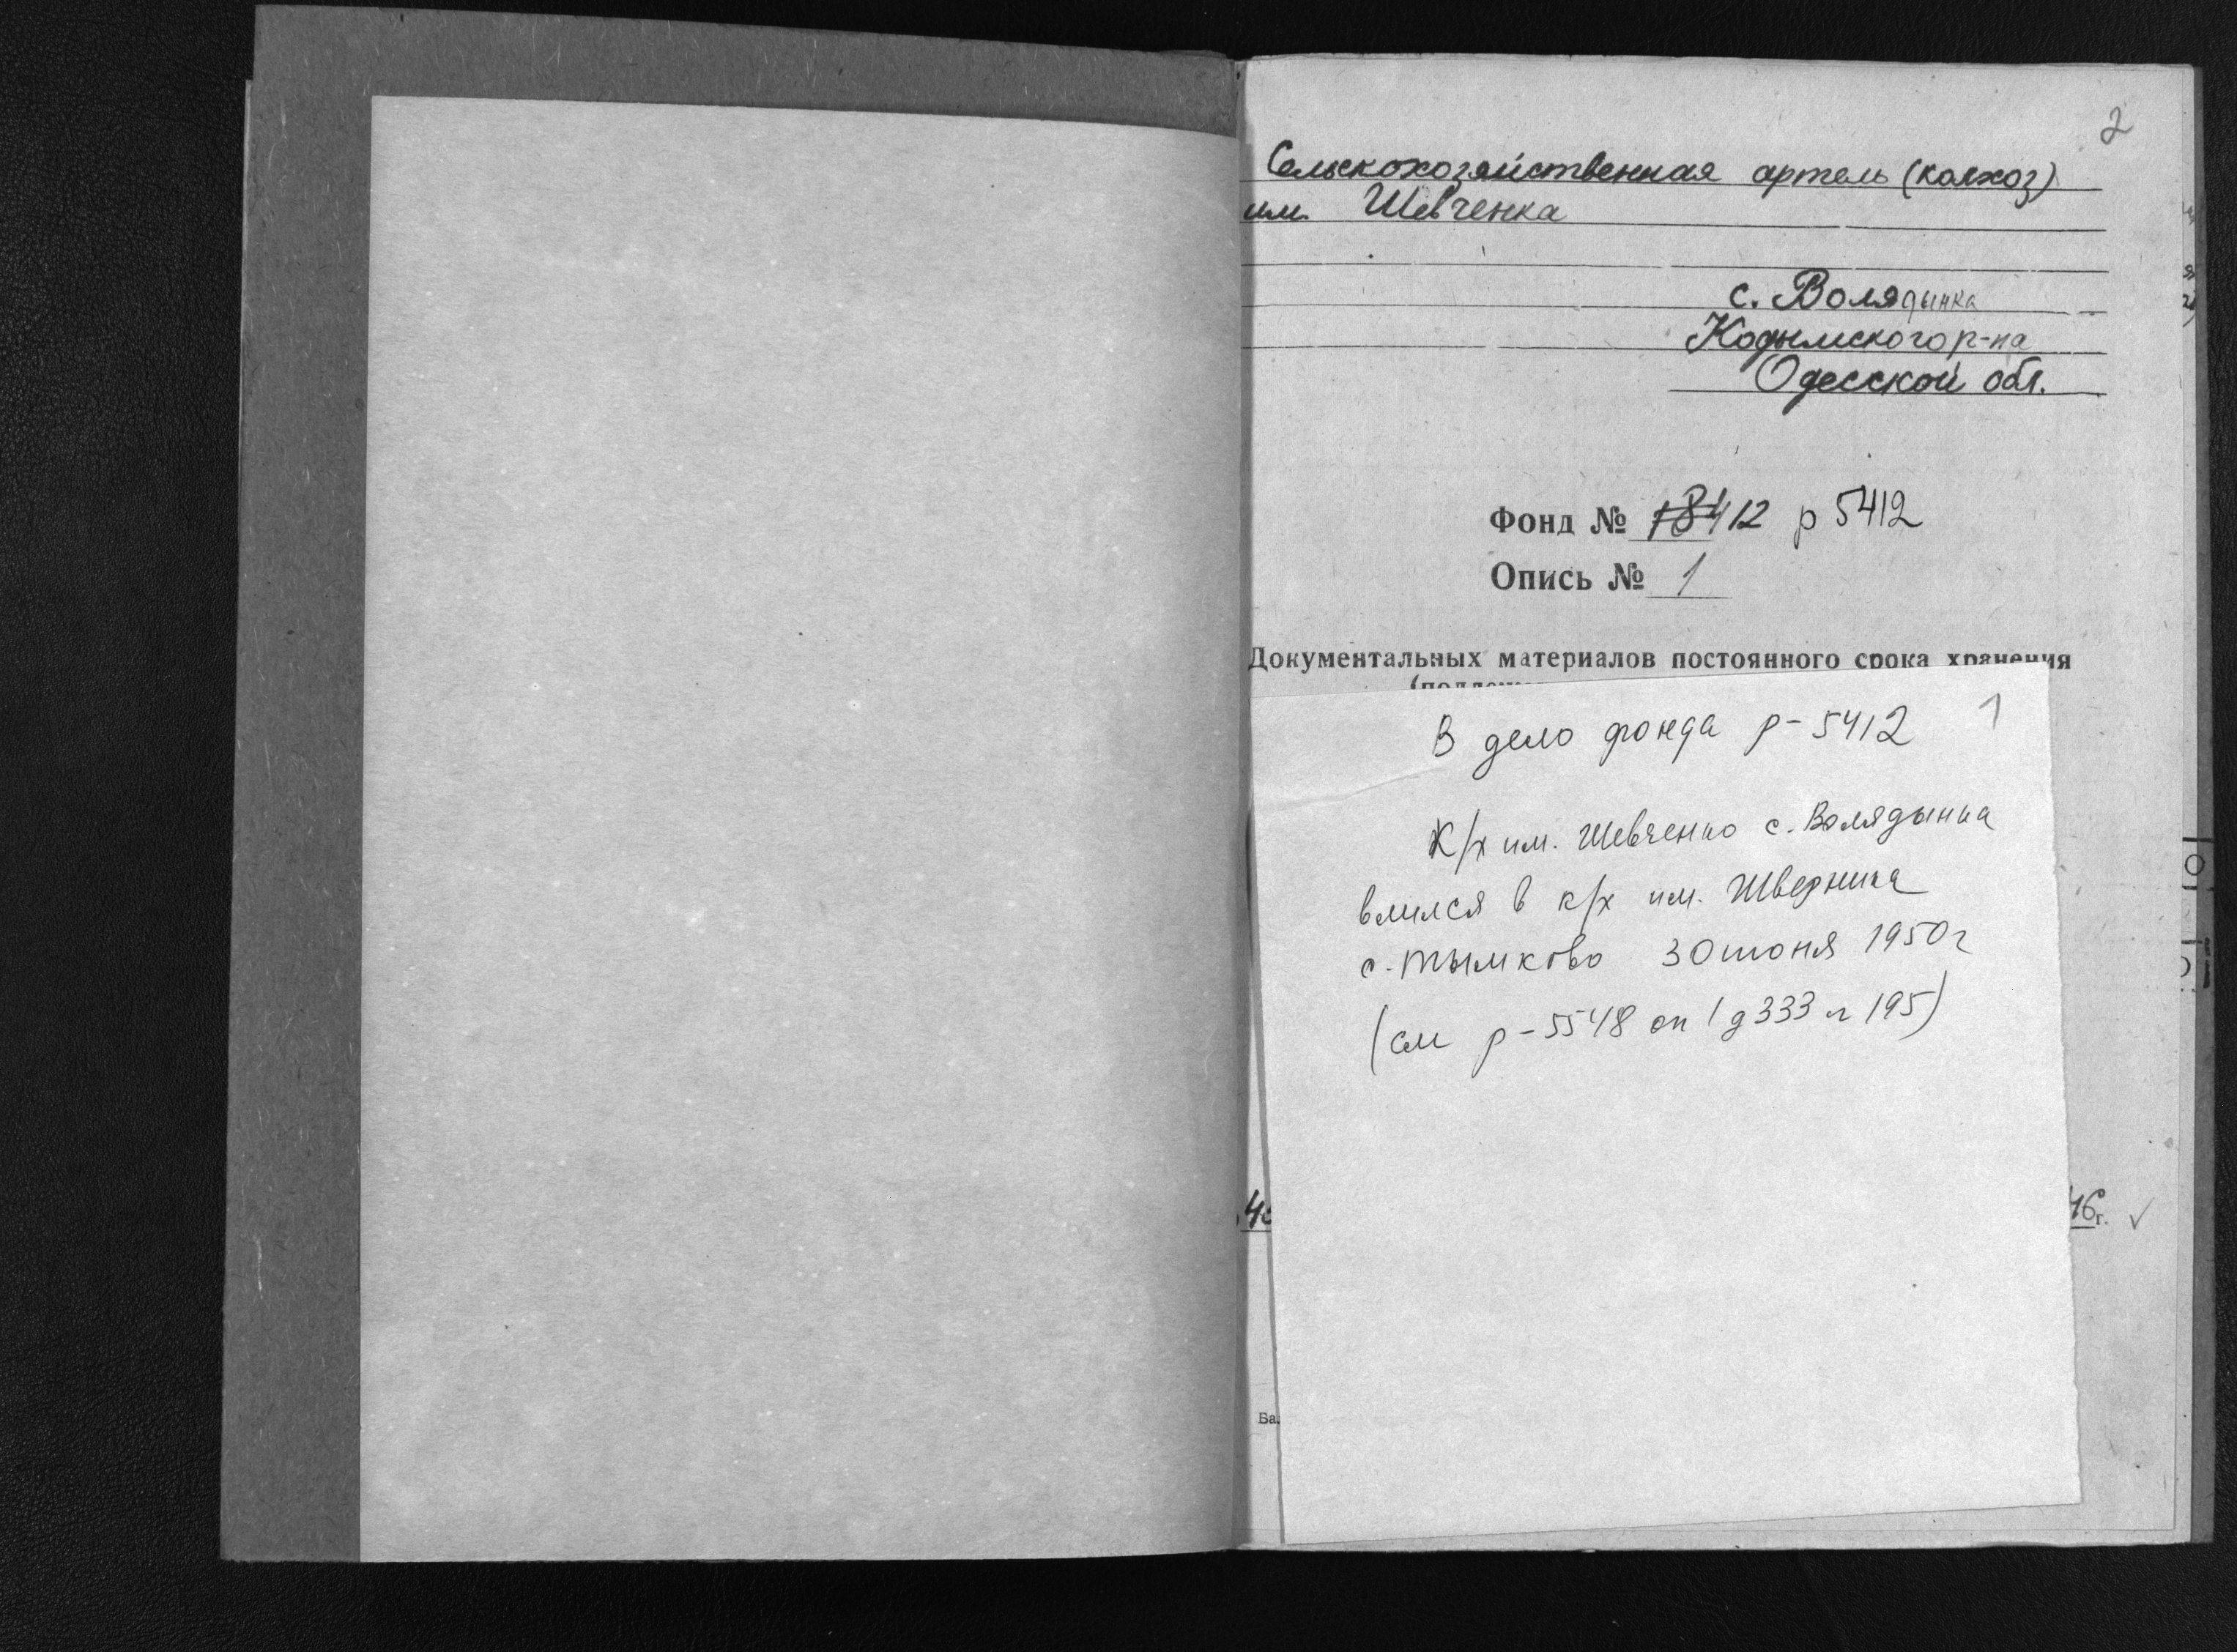 2
Сельскохозяйственная артель (колхоз)
им. Шевченка
с. Волядынка
Кодымского р-на
Одесской обл.
Фонд № 18412 р 5412
Опись № 1
Документальных материалов постоянного срока хранения
1
В дело фонда р-5412
К/х им. Шевченко с. Волядынка
влился в к/х им. Шверника
с. Тымково 30 июня 1950г
(см р-5548 оп 1 д 333 л 195)
46г.
Ба